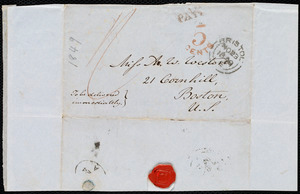 PAID
5
CENTS
BRISTOL
1849
Miss M. W. Weston
21 Cornhill,
Boston,
U.S.
To be delivered
immediately